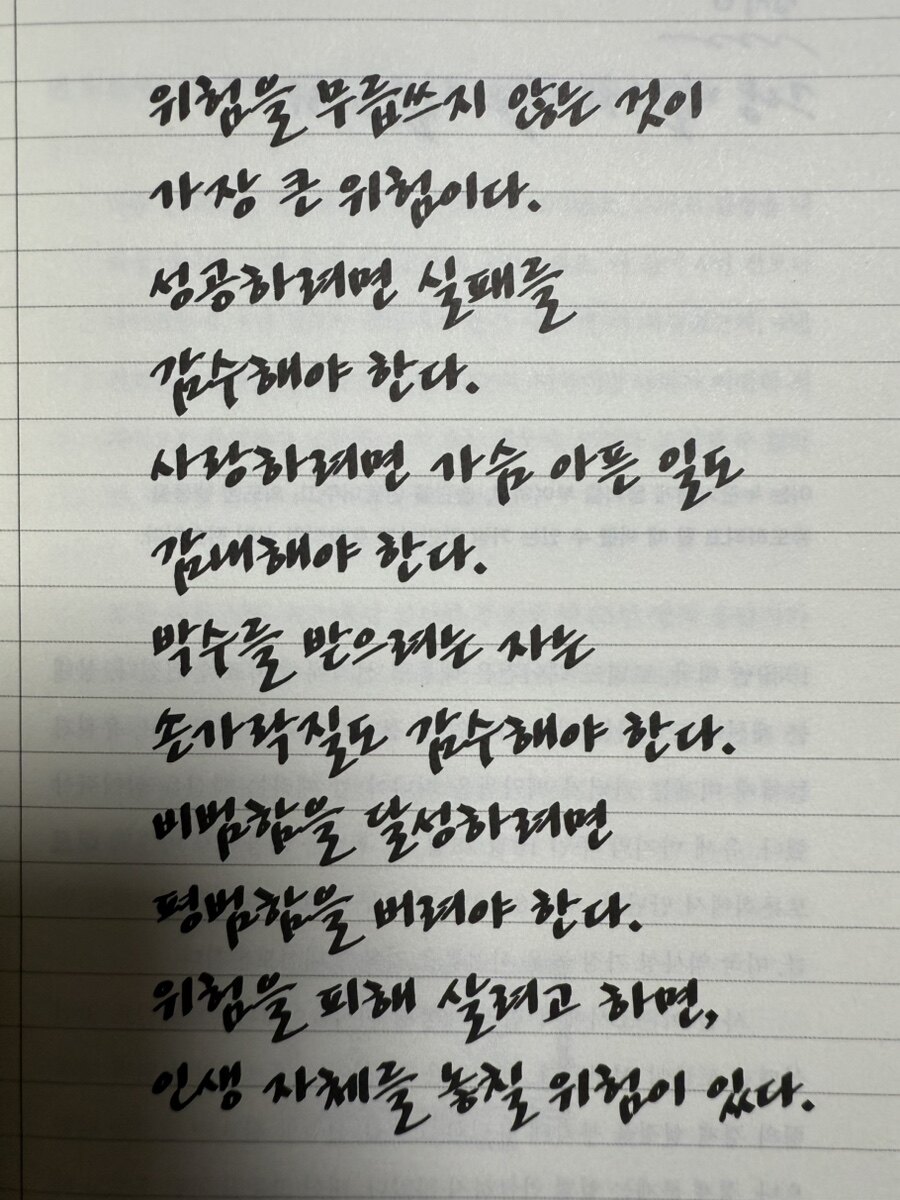 위험을 무릅쓰지 않는 것이
가장 큰 위험이다.
성공하려면 실패를
감수해야 한다.
사랑하려면 가슴 아픈 일도
감내해야 한다.
박수를 받으려는 자는
손가락질도 감수해야 한다.
비범함을 달성하려면
평범함을 버려야 한다.
위험을 피해 살려고 하면,
인생 자체를 놓칠 위험이 있다.